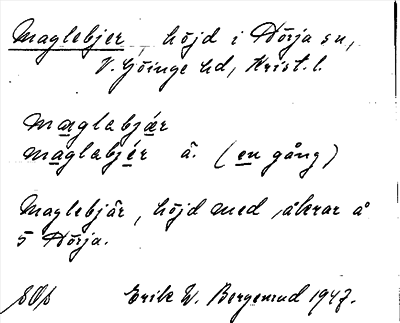 Maglebjer, höjd i Nörja sn,
V. Göinge hd, Krist. l.
mæglabjær
maglabjér ä. (en gång)
Maglebjär, höjd med åkrar å
5 Nörja.
Erik W. Bergenrud 1947.